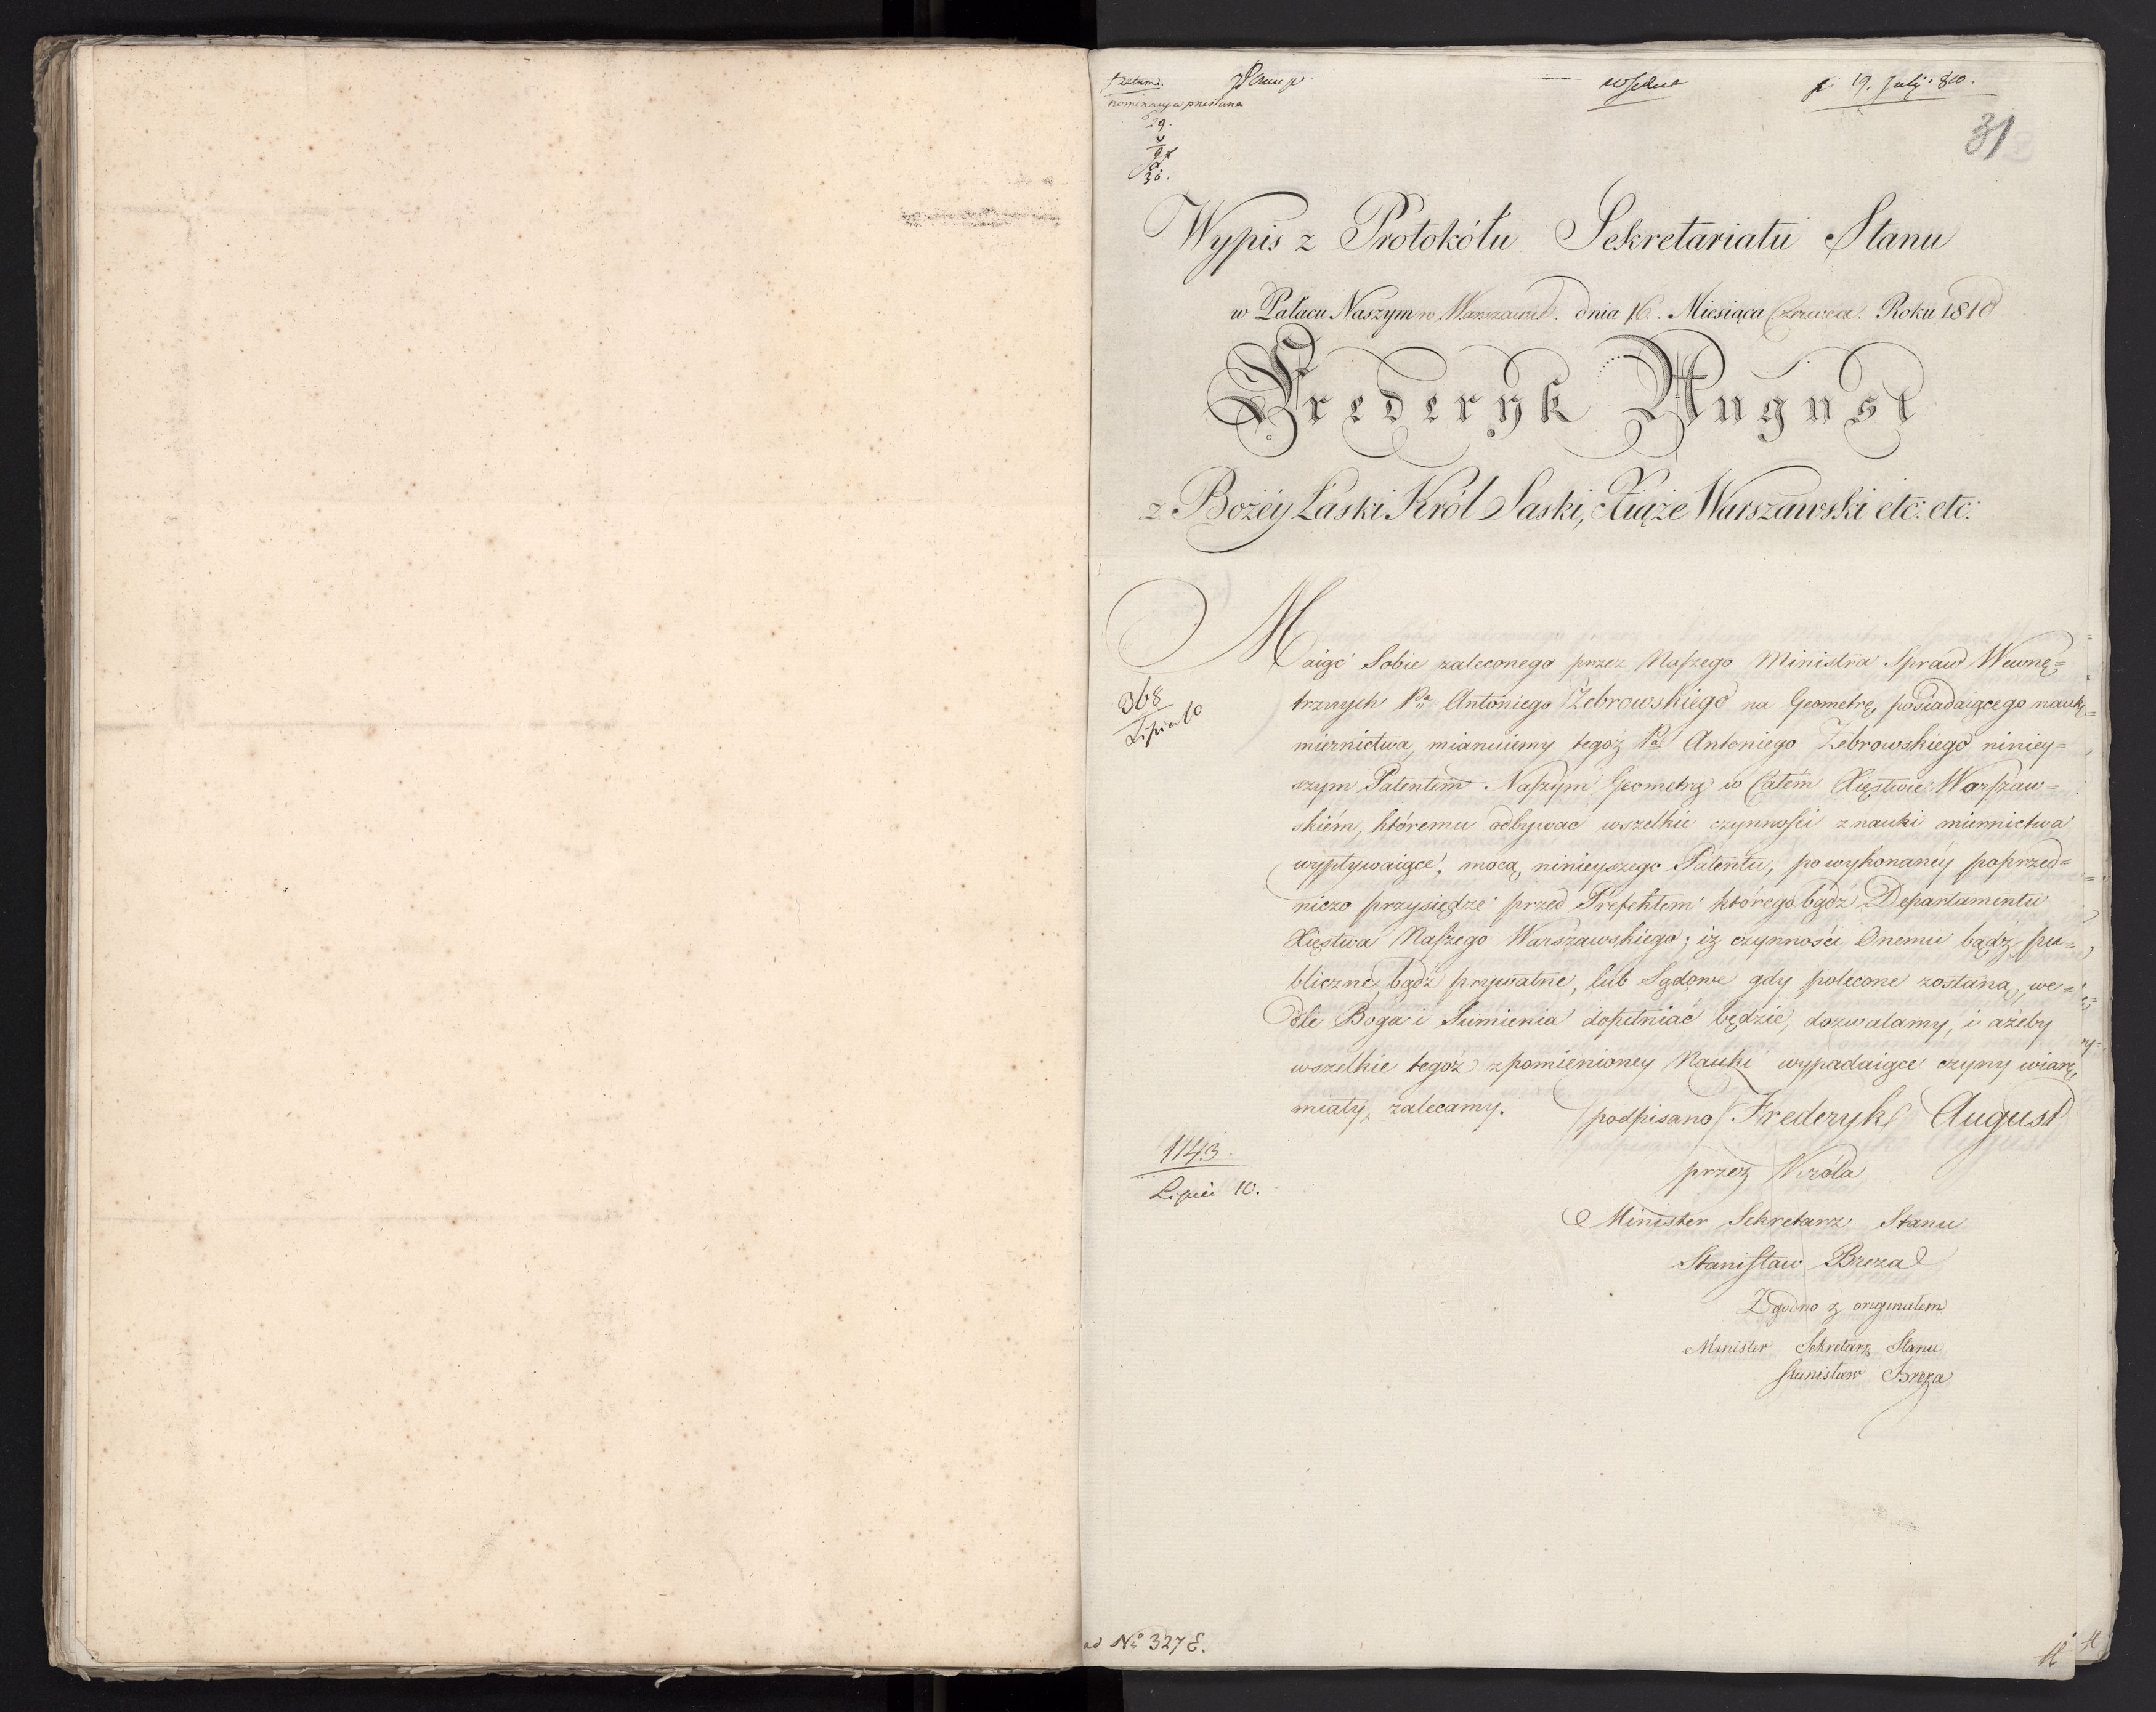 nominacya przesłana
p. 19. July 810.
31
29.
9
30.
Wypis z Protokółu Sekretariatu Stanu
w Pałacu Naszym w Warszawie. dnia 16. Miesiąca Czerwca. Roku 1810
Frederyk August
z Bożéy Łaski Król Saski, Xiąże Warszawski etc: etc:
Maiąć Sobie zaleconego przez Naszego Ministra Spraw Wewnę=
368
Lipca 10
trznych Pa Antoniego Żebrowskiego na Geometrę, posiadaiącego naukę
miernictwa, mianuiemy tegoż Pa Antoniego Żebrowskiego niniey=
szym Patentem Naszym Geometrą w Całém Xięstwie Warszaw=
skiém, któremu odbywać wszelkie czynności z nauki miernictwa
wypływaiące, mocą ninieyszego Patentu, po wykonanéy poprzed=
niczo przysiędze przed Prefektem którego bądź Departamentu
Xięstwa Naszego Warszawskiego; iż czynności Onemu bądź pu=
bliczne, bądź prywatne, lub Sądowe gdy polecone zostaną, we=
dle Boga i Sumienia dopełniać będzie, dozwalamy, i ażeby
wszelkie tegoż z pomienioney Nauki wypadaiące czyny wiarę
miały, zalecamy. /podpisano/ Frederyk August
1143.
Lipca 10.
przez Króla
Minister Sekretarz Stanu
Stanisław Breza
Zgodno z originałem
Minister Sekretarz Stanu
Stanisław Breza
ad No 327 E.